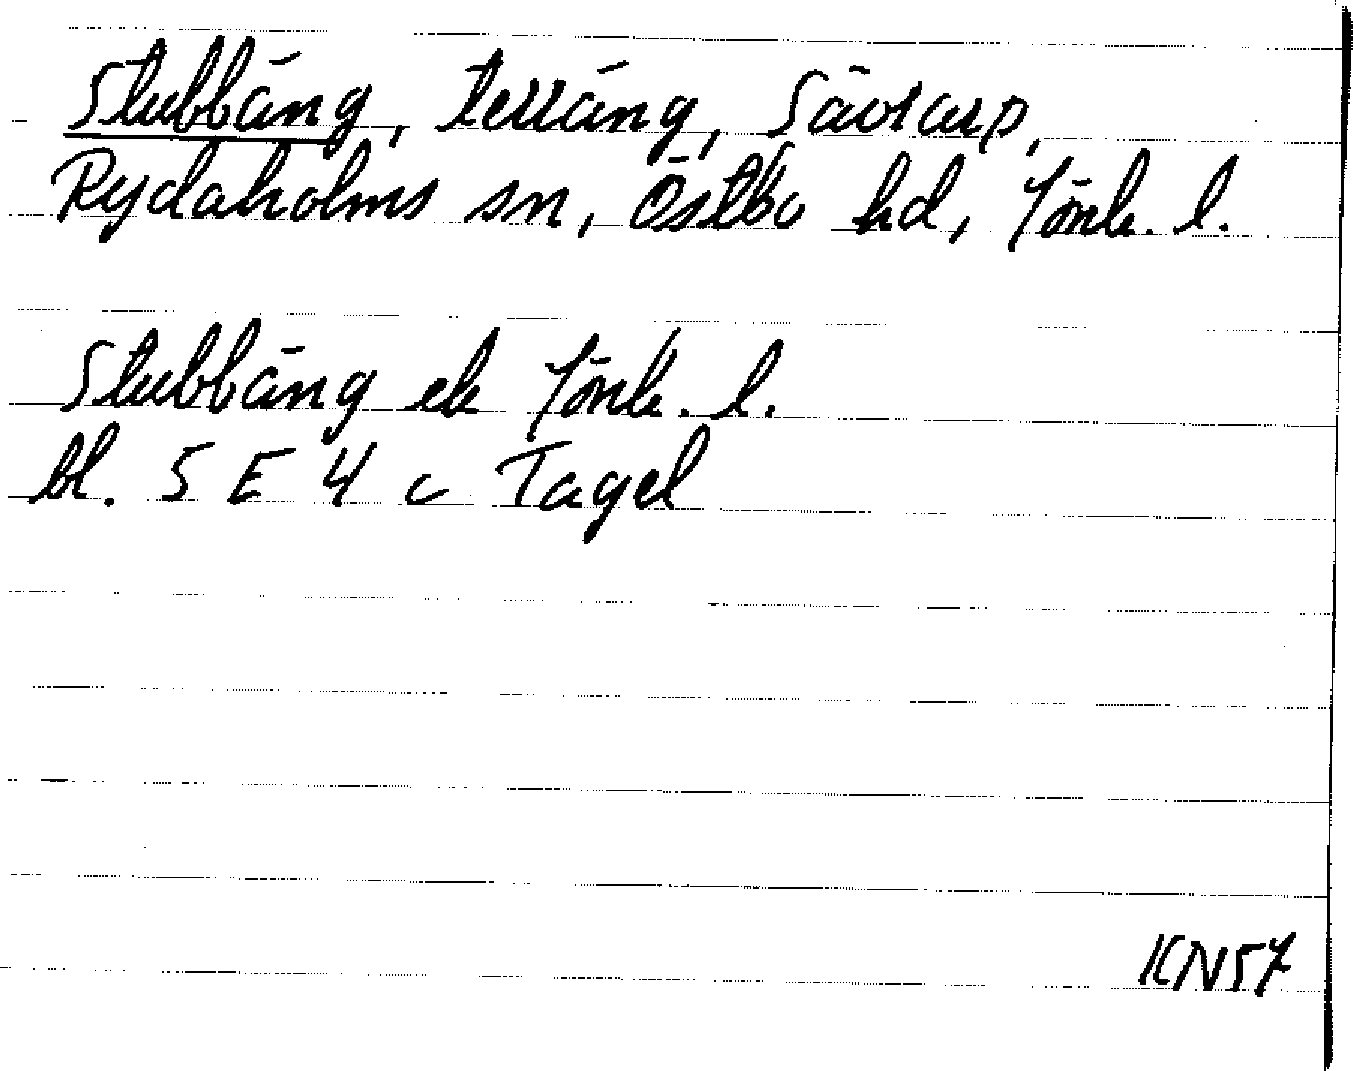 Stubbäng, terräng, Sävrarp,
Rydaholms sn, Östbo hd, Jönk. l.
Stubbäng ek Jönk. l.
bl. 5 E 4 c Tagel
KN57